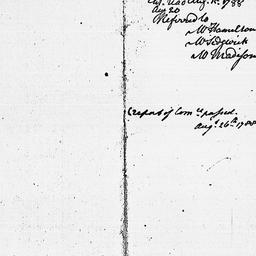 Aug. 1st. 1788
Aug 20
Referred to
Mr Hamilton
Mr Sedgwick
Mr Madison
(report of Com ee passed.
Augt. 26th. 1788